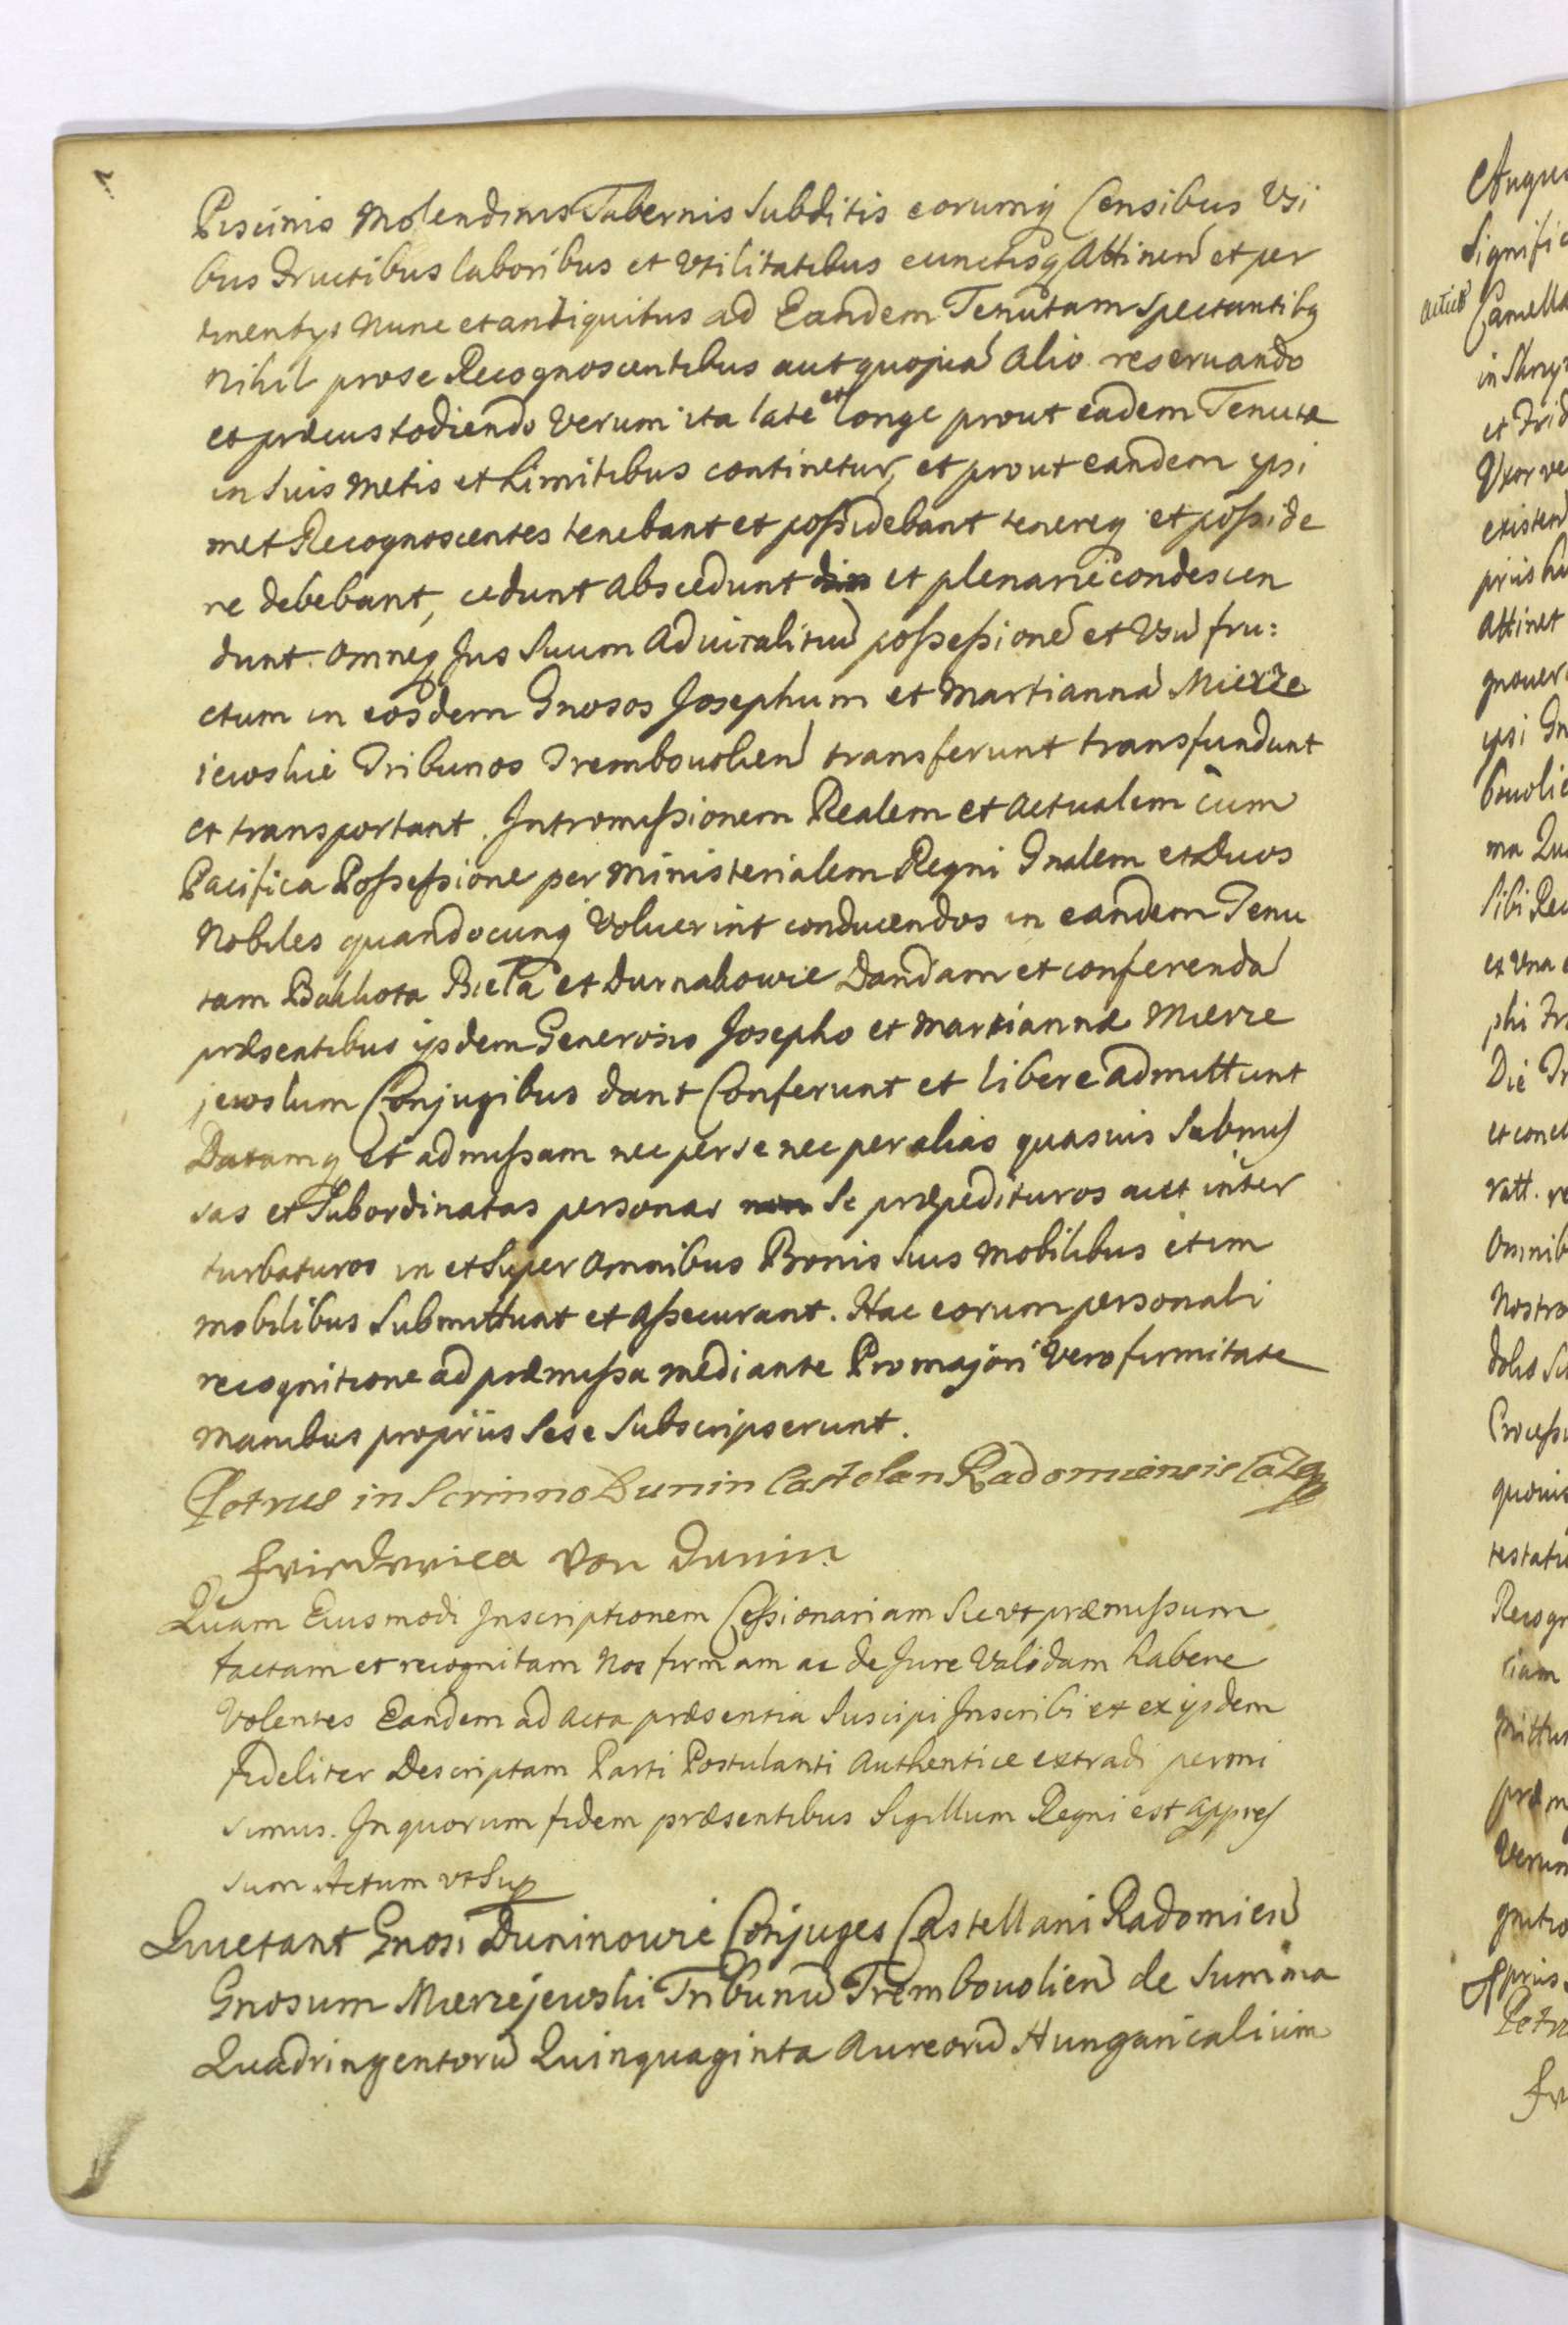 Piscinis Molendinis Tabernis Subditis eorumq Censibus Usi
bus Fructibus laboribus et Vtilitatibus cunctisq Attinen et per
tinentys nunc et antiquitus ad Eandem Tenutam Spectantibq
Nihil prose Recognoscentibus aut quopia Alio reseruando
et præcustodiendo Verum ita late et longe prout eadem Tenuta
in Suis Metis et Limitibus continetur, et prout eandem ipsi
met Recognoscentes tenebant et possidebant tenereq et posside
re debebant, cedunt Abscedunt et plenarie condescen
dunt. Omneq Jus Suum Advitalitiu possessione et Usu fru:
ctum in eosdem Gnosos Josephum et Martianna Mierze
iewskie Tribunos Trembouolien transferunt transfundunt
et transportant. Intromissionem Realem et Actualem cum
Pacifica Possessione per Ministerialem Regni Gnalem et Duos
Nobiles quandocunq Voluerint conducendos in eandem Tenu
tam Bakkota Biela et Durnakowie Dandam et conferenda
præsentibus ijsdem Generosis Josepho et Martiannæ Mierze
jewskim Conjugibus dant Conferunt et libere admittunt
Datamq et admissam nec per se nec per alias quasuis Submis
sas et Subordinatas personas Se præpedituros aut inter
turbaturos in et Super Omnibus Bonis Suis Mobilibus et im
mobilibus Submittunt et Assecurant. Hac eorum personali
recognitione ad præmissa mediante Pro majori Vero firmitate
Manibus propriis Sese Subscripserunt.
Petrus in Scrinno Dunin Castolan Radomiensis
Fridrica von Dunin
Quam Eiusmodi Inscriptionem Cessionariam Sic vt præmissum
factam et recognitam Nos firmam ac de Jure Validam habere
Volentes Eandem ad Acta præsentia Suscipi Inscribi et ex ijsdem
fideliter Descriptam Parti Postulanti Authentice extradi permi
simus. In quorum fidem præsentibus Sigillum Regni est Appres
sum Actum vt Sup
Quietant Gnosi Duninowie Conjuges Castellani Radomien
Gnosum Mierzejewski Tribunu Trembouolien de Summa
Quadringentoru Quinquaginta Aureoru Hungaricalium